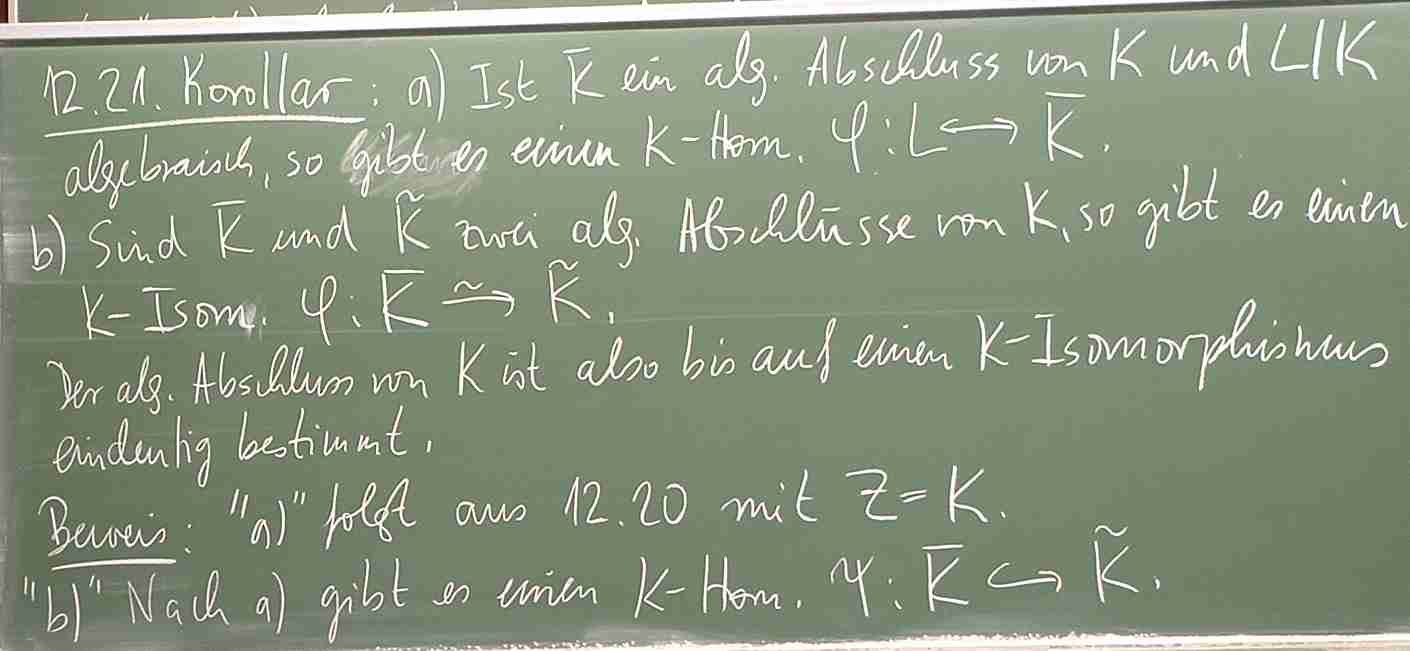 12.21. Korollar: a) Ist K̅ ein alg. Abschluss von K und L/K
algebraisch, so gibt es einen K-Hom. φ: L ↪ K̅.
b) Sind K̅ und K̃ zwei alg. Abschlüsse von K, so gibt es einen
K-Isom. φ: K̅ ⥲ K̃.
Der alg. Abschluss von K ist also bis auf einen K-Isomorphismus
eindeutig bestimmt.
Beweis: "a)" folgt aus 12.20 mit Z = K.
"b)" Nach a) gibt es einen K-Hom. φ: K̅ ↪ K̃.